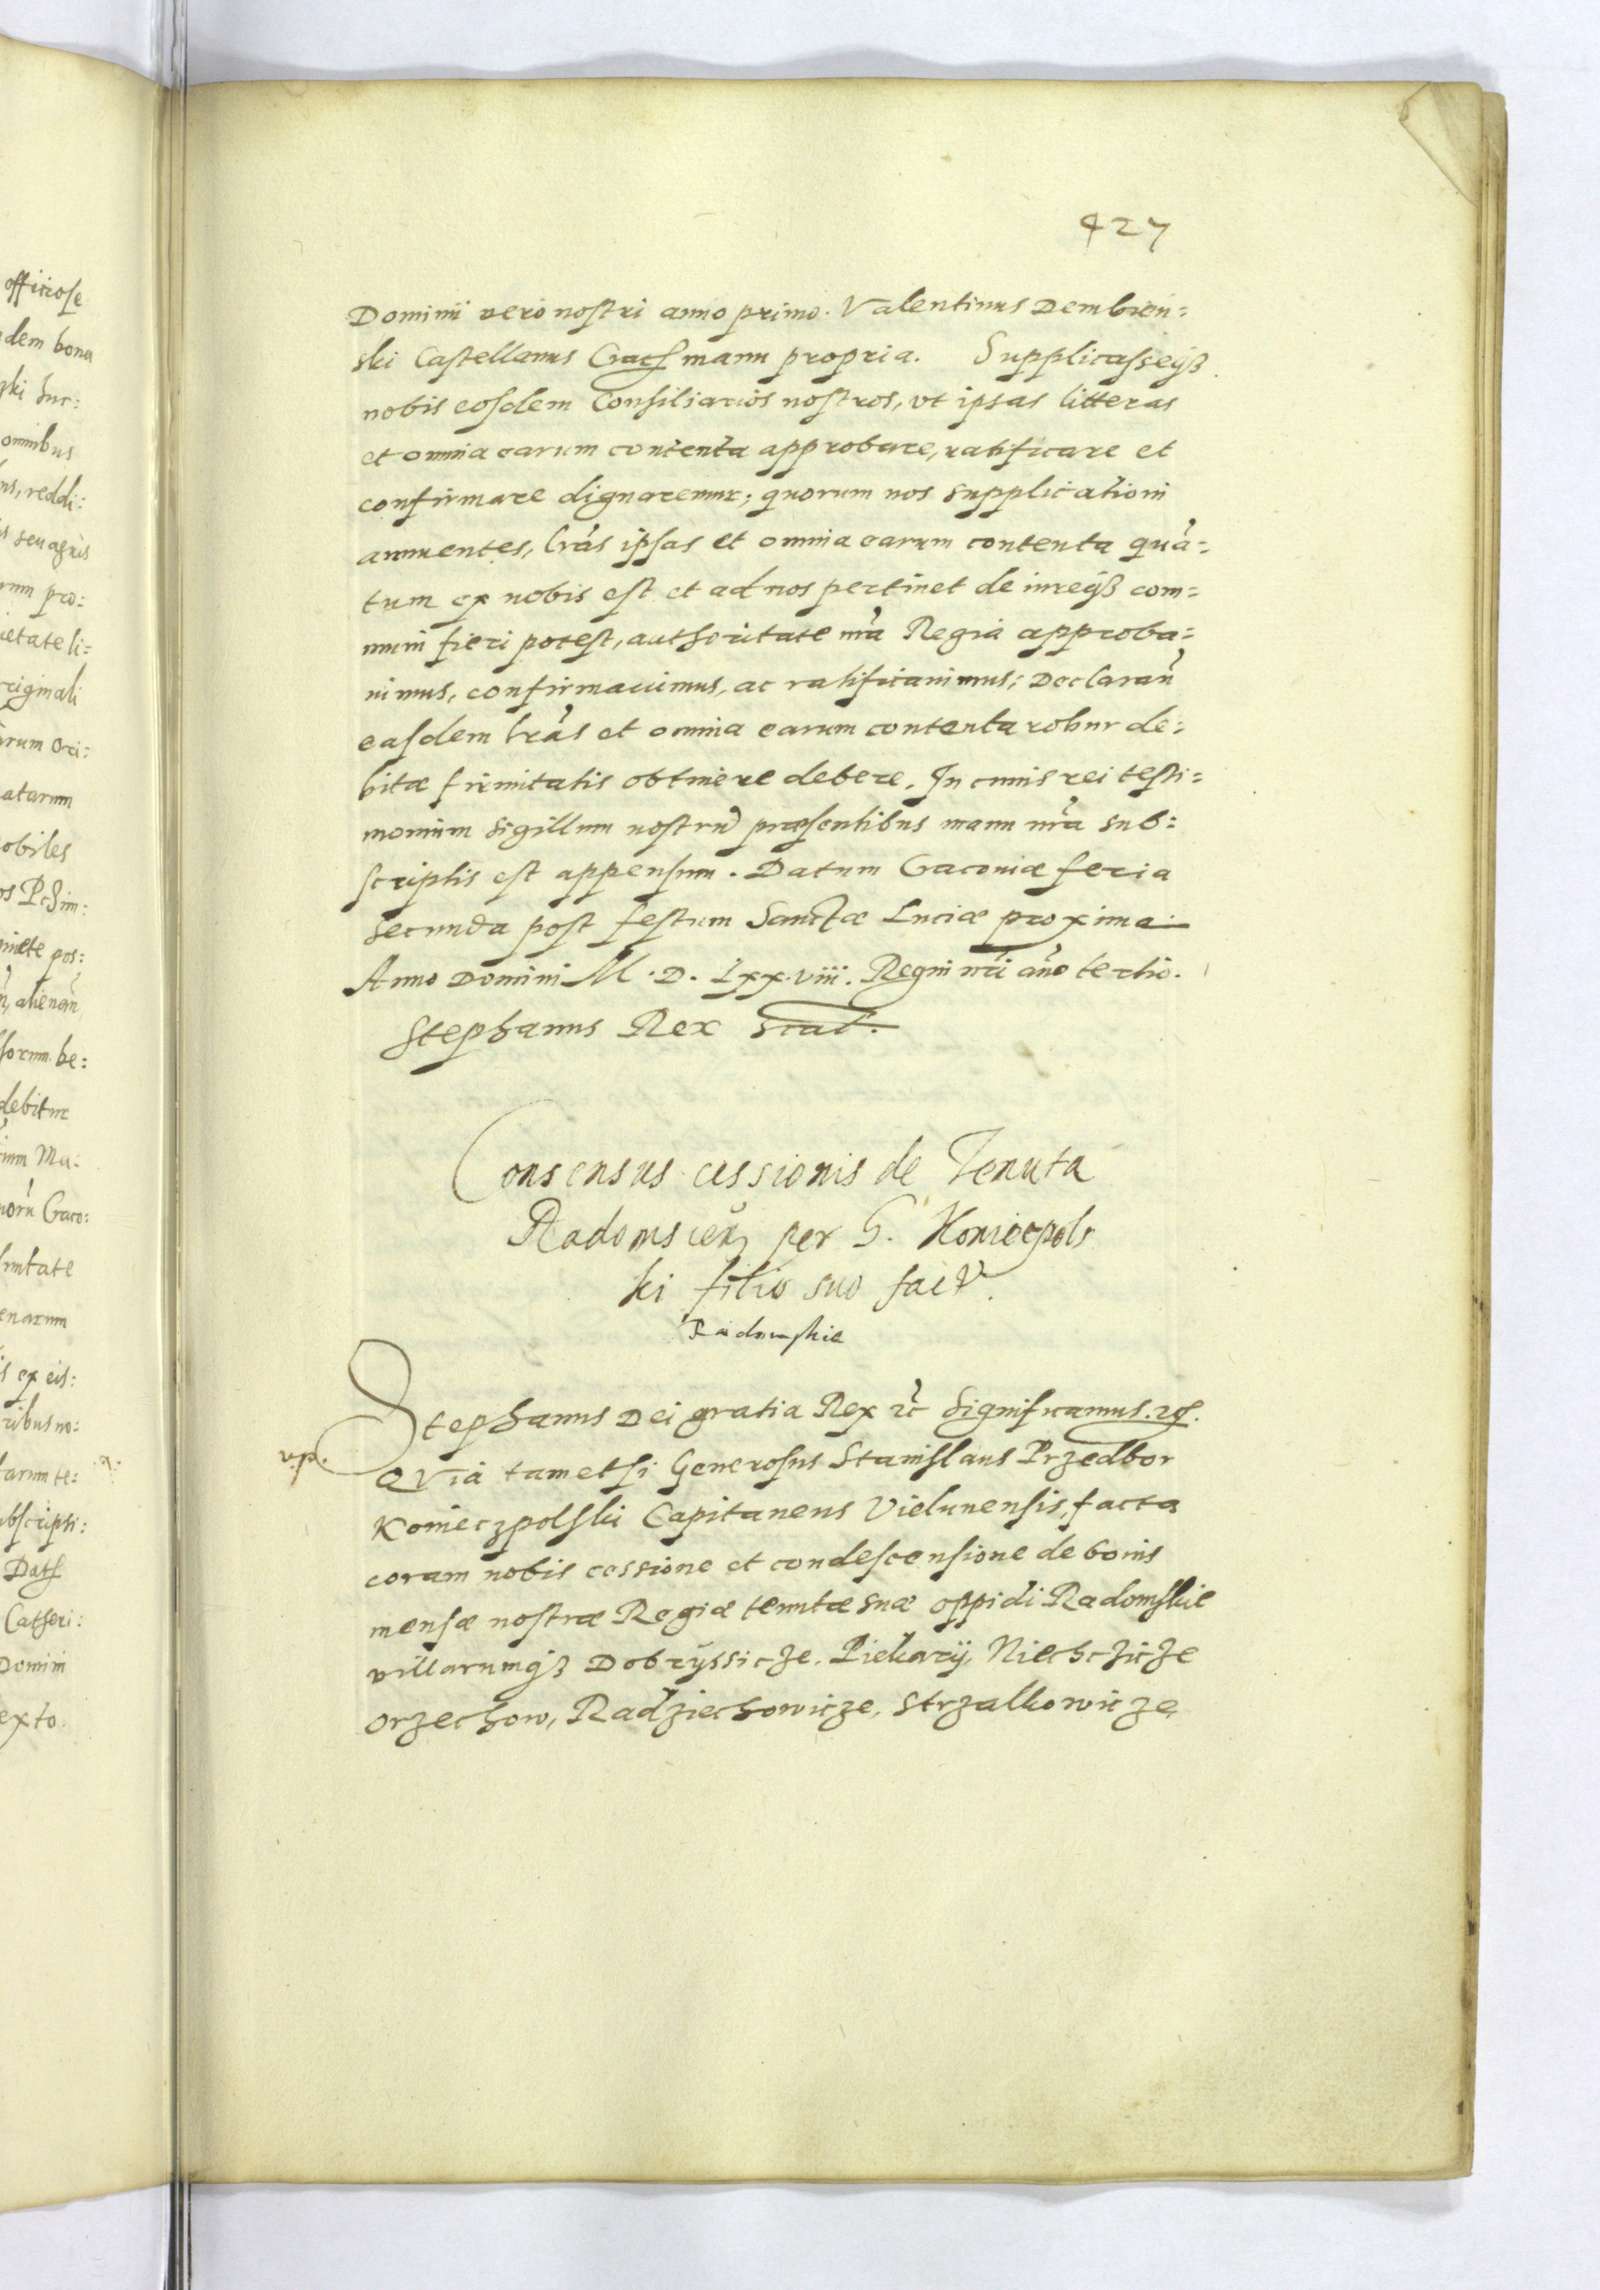 427
Dominii vero nostri anno primo. Valentinus Dembien:
ski Castellanus Crac manu propria. Supplicasseqȝ
nobis eosdem Consiliarios nostros, vt ipsas litteras
et omnia earum contenta approbare, ratificare et
confirmare dignaremur; quorum nos supplicationi
annuentes, lrãs ipsas et omnia earum contenta quã:
tum ex nobis est et ad nos pertinet de iureqȝ com:
muni fieri potest, authoritate nrã Regia approba:
uimus, confirmauimus, ac ratificauimus; Declarañ
easdem lrãs et omnia earum contenta robur de:
bitæ firmitatis obtinere debere. In cuius rei testi:
monium sigillum nostrũ præsentibus manu nrã sub:
scriptis est appensum. Datum Cracouiæ feria
secunda post festum Sanctæ Luciæ proxima
Anno Domini M.D.Lxx.viii. Regni nrĩ año tertio.
Stephanus Rex scat.
Consensus cessionis de Tenuta
Radomscen per G. Koniecpols
ki filio suo fact.
Radomskie
Stephanus Dei gratia Rex rc̃ significamus. rc.
vp.
Qvia tametsi Generosus Stanislaus Przedbor
Koniecżpolski Capitaneus Vielunensis, facta
coram nobis cessione et condescensione de bonis
mensæ nostræ Regiæ tenutæ suæ oppidi Radomskie
villarumqȝ Dobryssicze, Piekarÿ, Niechcżicże
Orzechow, Radziechowicze, Strzalkowicze,
officiose
dem bona
omnibus
ns, reddi:
seu agris
rum pro:
ietate li:
riginali
arum Ori:
atarum
obiles
os Pcżim:
pos:
alienañ
sorum be:
debitur
Ma:
Craco:
enarum
is ex eis:
ribus no:
arum te:
.a.
ubscripti:
Dat
Catheri:
Domini
exto.